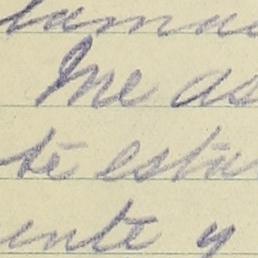 Me as
té esta
ente y